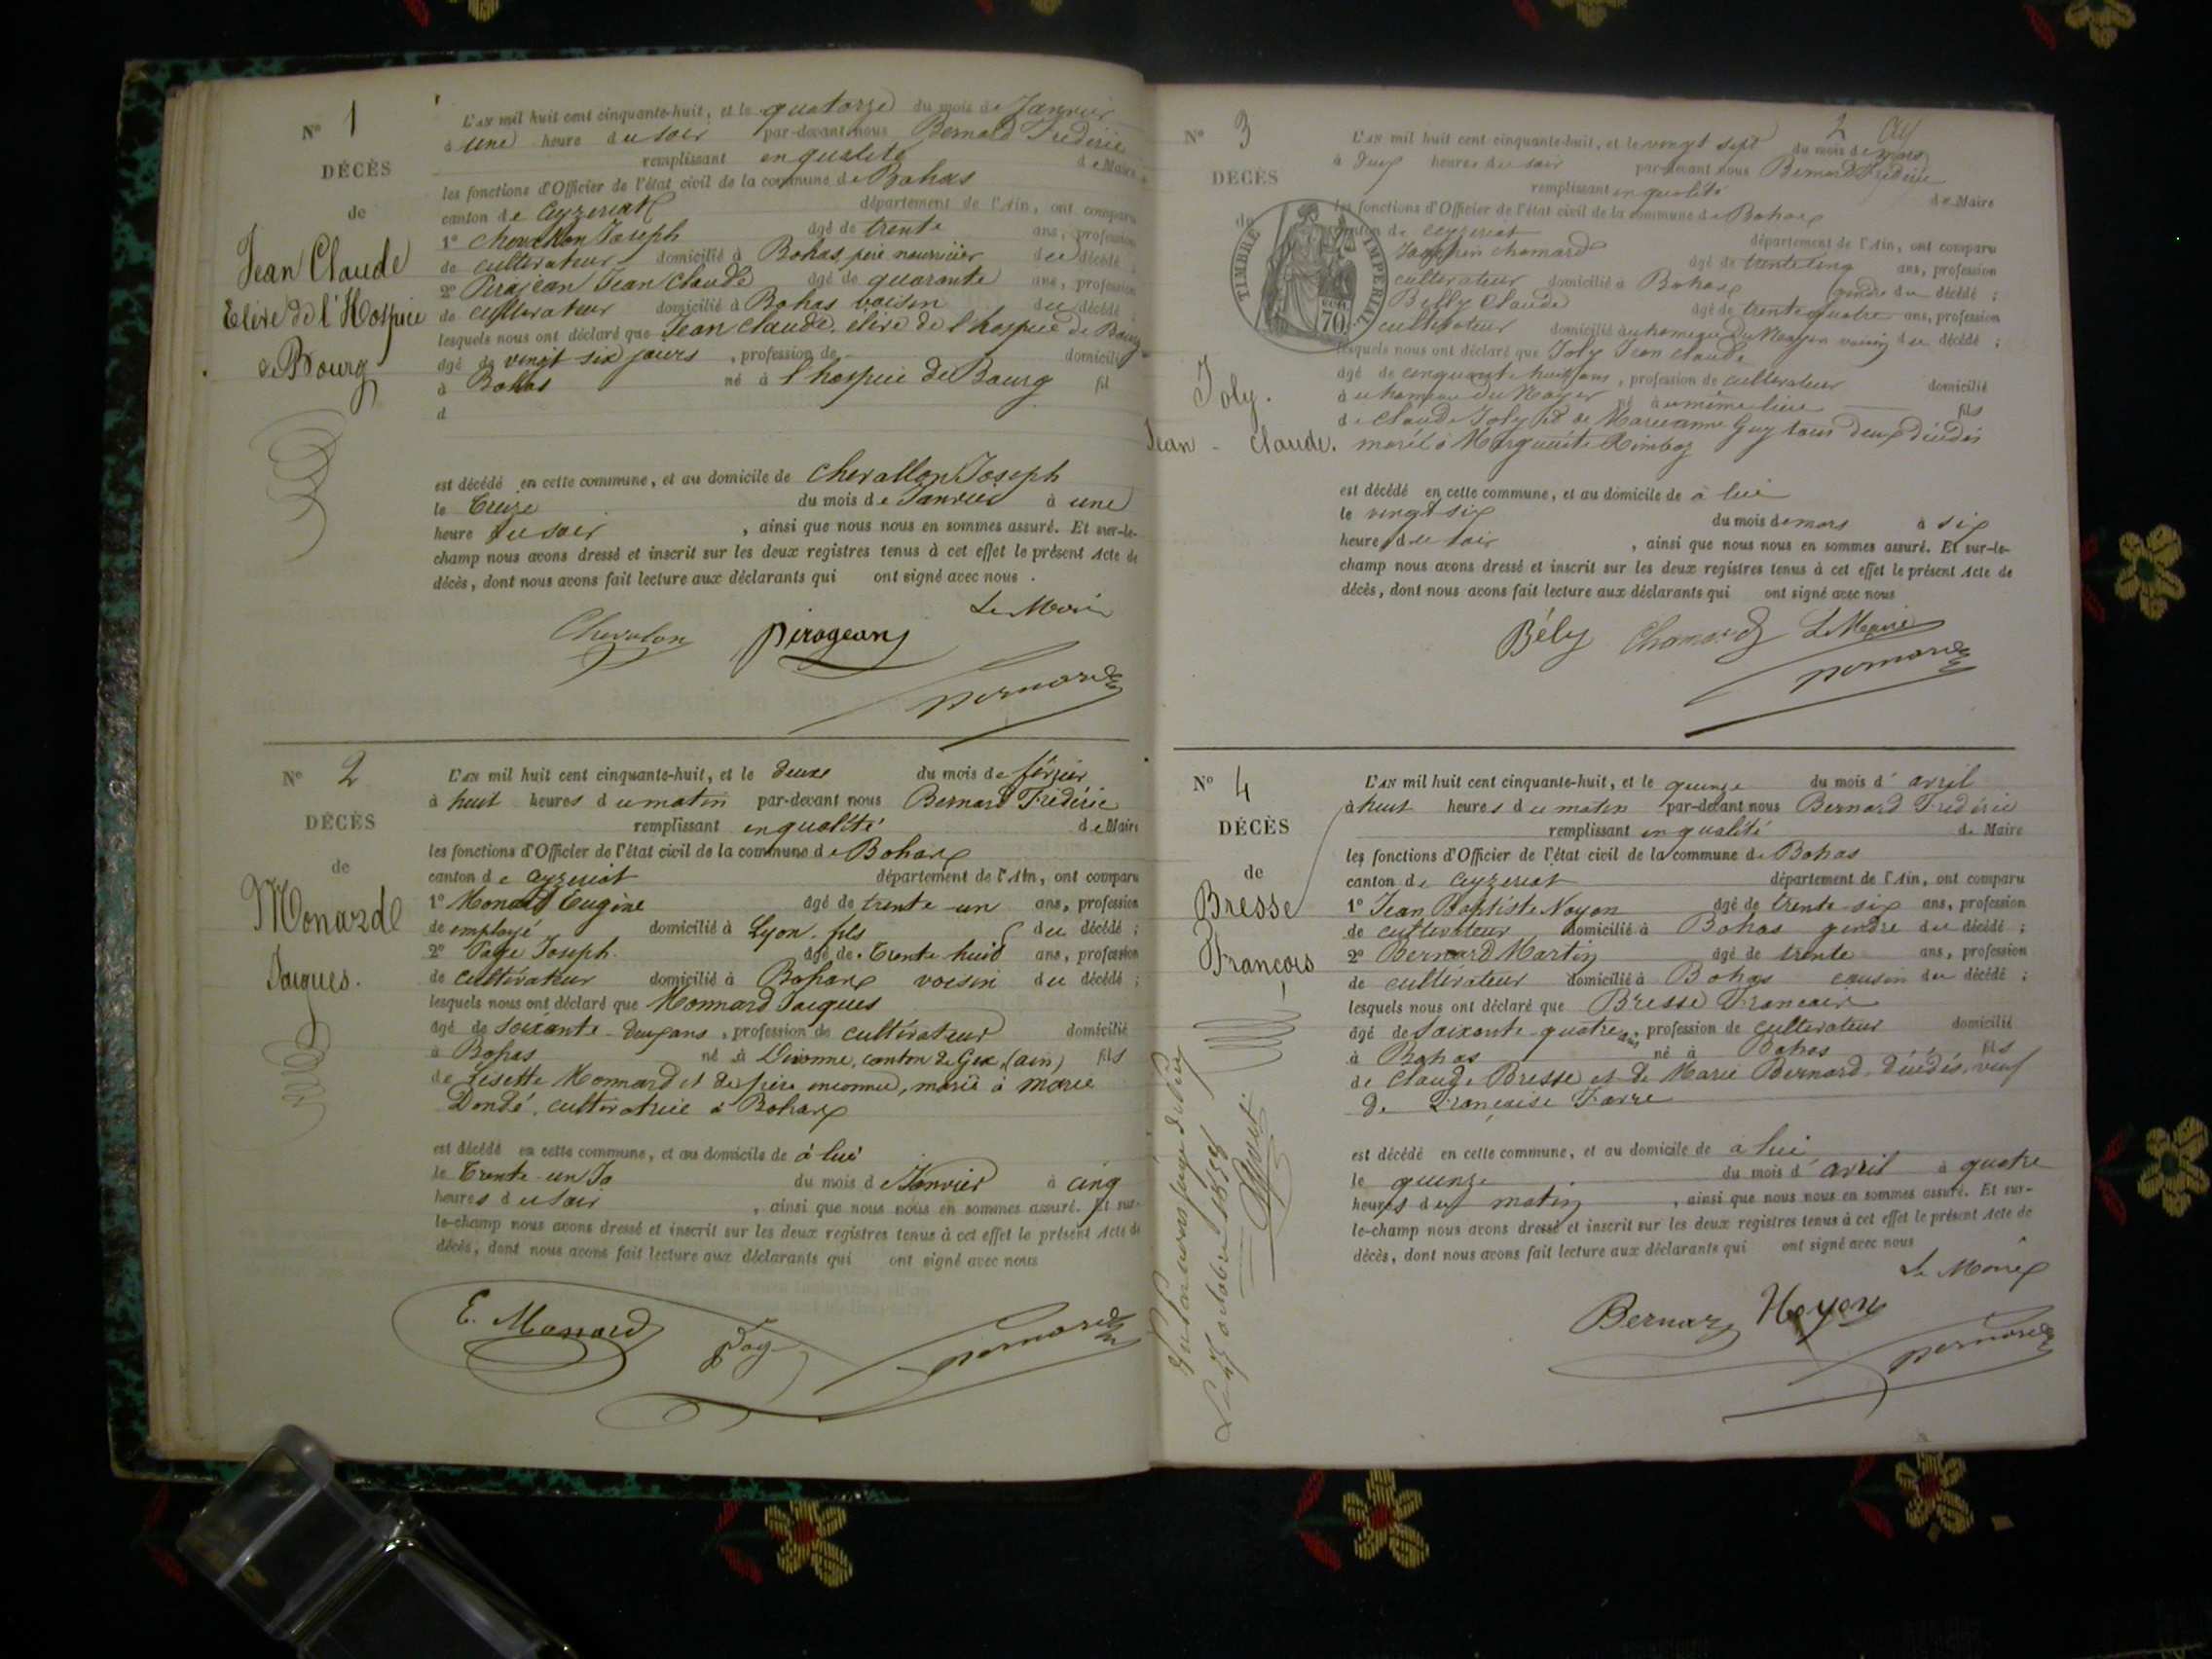 N° 1
DÉCÈS
de
Jean Claude
Elève de l'Hospice
de Bourg
L'AN mil huit cent cinquante-huit, et le quatorze du mois de Janvier
à une heure du soir par-devant nous Bernard Frédéric
remplissant en qualité de Maire
les fonctions d'Officier de l'état civil de la commune de Bohas
canton de Ceyzeriat département de l'Ain, ont comparu
1° Chevallon Joseph âgé de trente ans, profession
de cultivateur domicilié à Bohas père nourricier du décédé ;
2° Pirajean Jean Claude âgé de quarante ans, profession
de cultivateur domicilié à Bohas voisin du décédé ;
lesquels nous ont déclaré que Jean Claude, élève de l'hospice de Bourg
âgé de vingt six jours , profession de domicilié
à Bohas né à l'hospice de Bourg fil
d
est décédé en cette commune, et au domicile de Chevallon Joseph
le treize du mois de Janvier à une
heure du soir , ainsi que nous nous en sommes assuré. Et sur-le-
champ nous avons dressé et inscrit sur les deux registres tenus à cet effet le présent Acte de
décès, dont nous avons fait lecture aux déclarants qui ont signé avec nous .
Le Maire
Chevalon pirageau
bernard
N° 2
DÉCÈS
de
Monard
Jacques.
L'AN mil huit cent cinquante-huit, et le deuxe du mois de février
à huit heures du matin par-devant nous Bernard Frédéric
remplissant en qualité de Maire
les fonctions d'Officier de l'état civil de la commune de Bohas
canton de Ceyzeriat département de l'Ain, ont comparu
1° Monard Eugène âgé de trente-un ans, profession
de employé domicilié à Lyon. fils du décédé ;
2° Page Joseph. âgé de trente huit ans, profession
de cultivateur domicilié à Bohas voisin du décédé ;
lesquels nous ont déclaré que Monnard Jacques
âgé de soixante-deux ans , profession de cultivateur domicilié
à Bohas né à Divonne, canton de Gex, (ain) fils
de Lisette Monnard et de père inconnu, marié à marie
Dondé, cultivatrice à Bohas
est décédé en cette commune, et au domicile de à lui
le trente-un Ja du mois de Janvier à cinq
heures du soir , ainsi que nous nous en sommes assuré. Et sur-
le-champ nous avons dressé et inscrit sur les deux registres tenus à cet effet le présent Acte de
décès, dont nous avons fait lecture aux déclarants qui ont signé avec nous
E. Monard Page bernard
2
N° 3
DÉCÈS
de
TIMBRE IMPERIAL
70
Joly.
Jean - Claude.
L'AN mil huit cent cinquante-huit, et le vingt sept du mois de mars
à deux heures du soir par-devant nous Bernard Frédéric
remplissant en qualité de Maire
les fonctions d'Officier de l'état civil de la commune de Bohas
canton de Ceyzeriat département de l'Ain, ont comparu
Chanard âgé de trente cinq ans, profession
cultivateur domicilié à Bohas gendre du décédé ;
Belly Claude âgé de trente quatre ans, profession
cultivateur domicilié au hameau du Noyer voisin du décédé ;
lesquels nous ont déclaré que Joly Jean Claude
âgé de cinquante huit ans , profession de cultivateur domicilié
à au hameau du Noyer né à au même lieu fils
de Claude Joly et de Marianne Guy tous deux décédés
marié à Marguerite
est décédé en cette commune, et au domicile de à lui
le vingt six du mois de mars à six
heures du soir , ainsi que nous nous en sommes assuré. Et sur-le-
champ nous avons dressé et inscrit sur les deux registres tenus à cet effet le présent Acte de
décès, dont nous avons fait lecture aux déclarants qui ont signé avec nous
Bély Chanard Le Maire
bernard
N° 4
DÉCÈS
de
Bresse
François
L'AN mil huit cent cinquante-huit, et le quinze du mois d'avril
à huit heures du matin par-devant nous Bernard Frédéric
remplissant en qualité de Maire
les fonctions d'Officier de l'état civil de la commune de Bohas
canton de Ceyzeriat département de l'Ain, ont comparu
1° Jean Baptiste Noyon âgé de trente-six ans, profession
de cultivateur domicilié à Bohas gendre du décédé ;
2° Bernard Martin âgé de trente ans, profession
de cultivateur domicilié à Bohas cousin du décédé ;
lesquels nous ont déclaré que Bresse Francois
âgé de soixante-quatre ans, profession de cultivateur domicilié
à Bohas né à Bohas fils
de Claude Bresse et de Marie Bernard, décédés, veuf
de Françoise Favre
est décédé en cette commune, et au domicile de à lui
le quinze du mois d'avril à quatre
heures du matin , ainsi que nous nous en sommes assuré. Et sur-
le-champ nous avons dressé et inscrit sur les deux registres tenus à cet effet le présent Acte de
décès, dont nous avons fait lecture aux déclarants qui ont signé avec nous
Le Maire
Bernard Noyon
bernard
octobre 1858